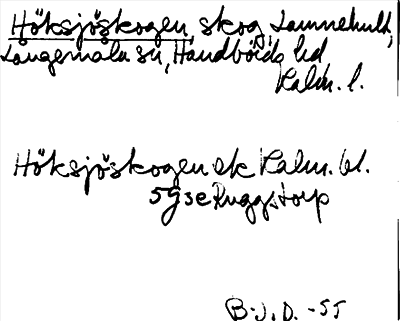 Höksjöskogen, skog, Lamnehult,
Långemåla sn, Handbörds hd
Kalm. l.
Höksjöskogen ek Kalm. bl.
5g se Ruggstorp
B.J.D. -55